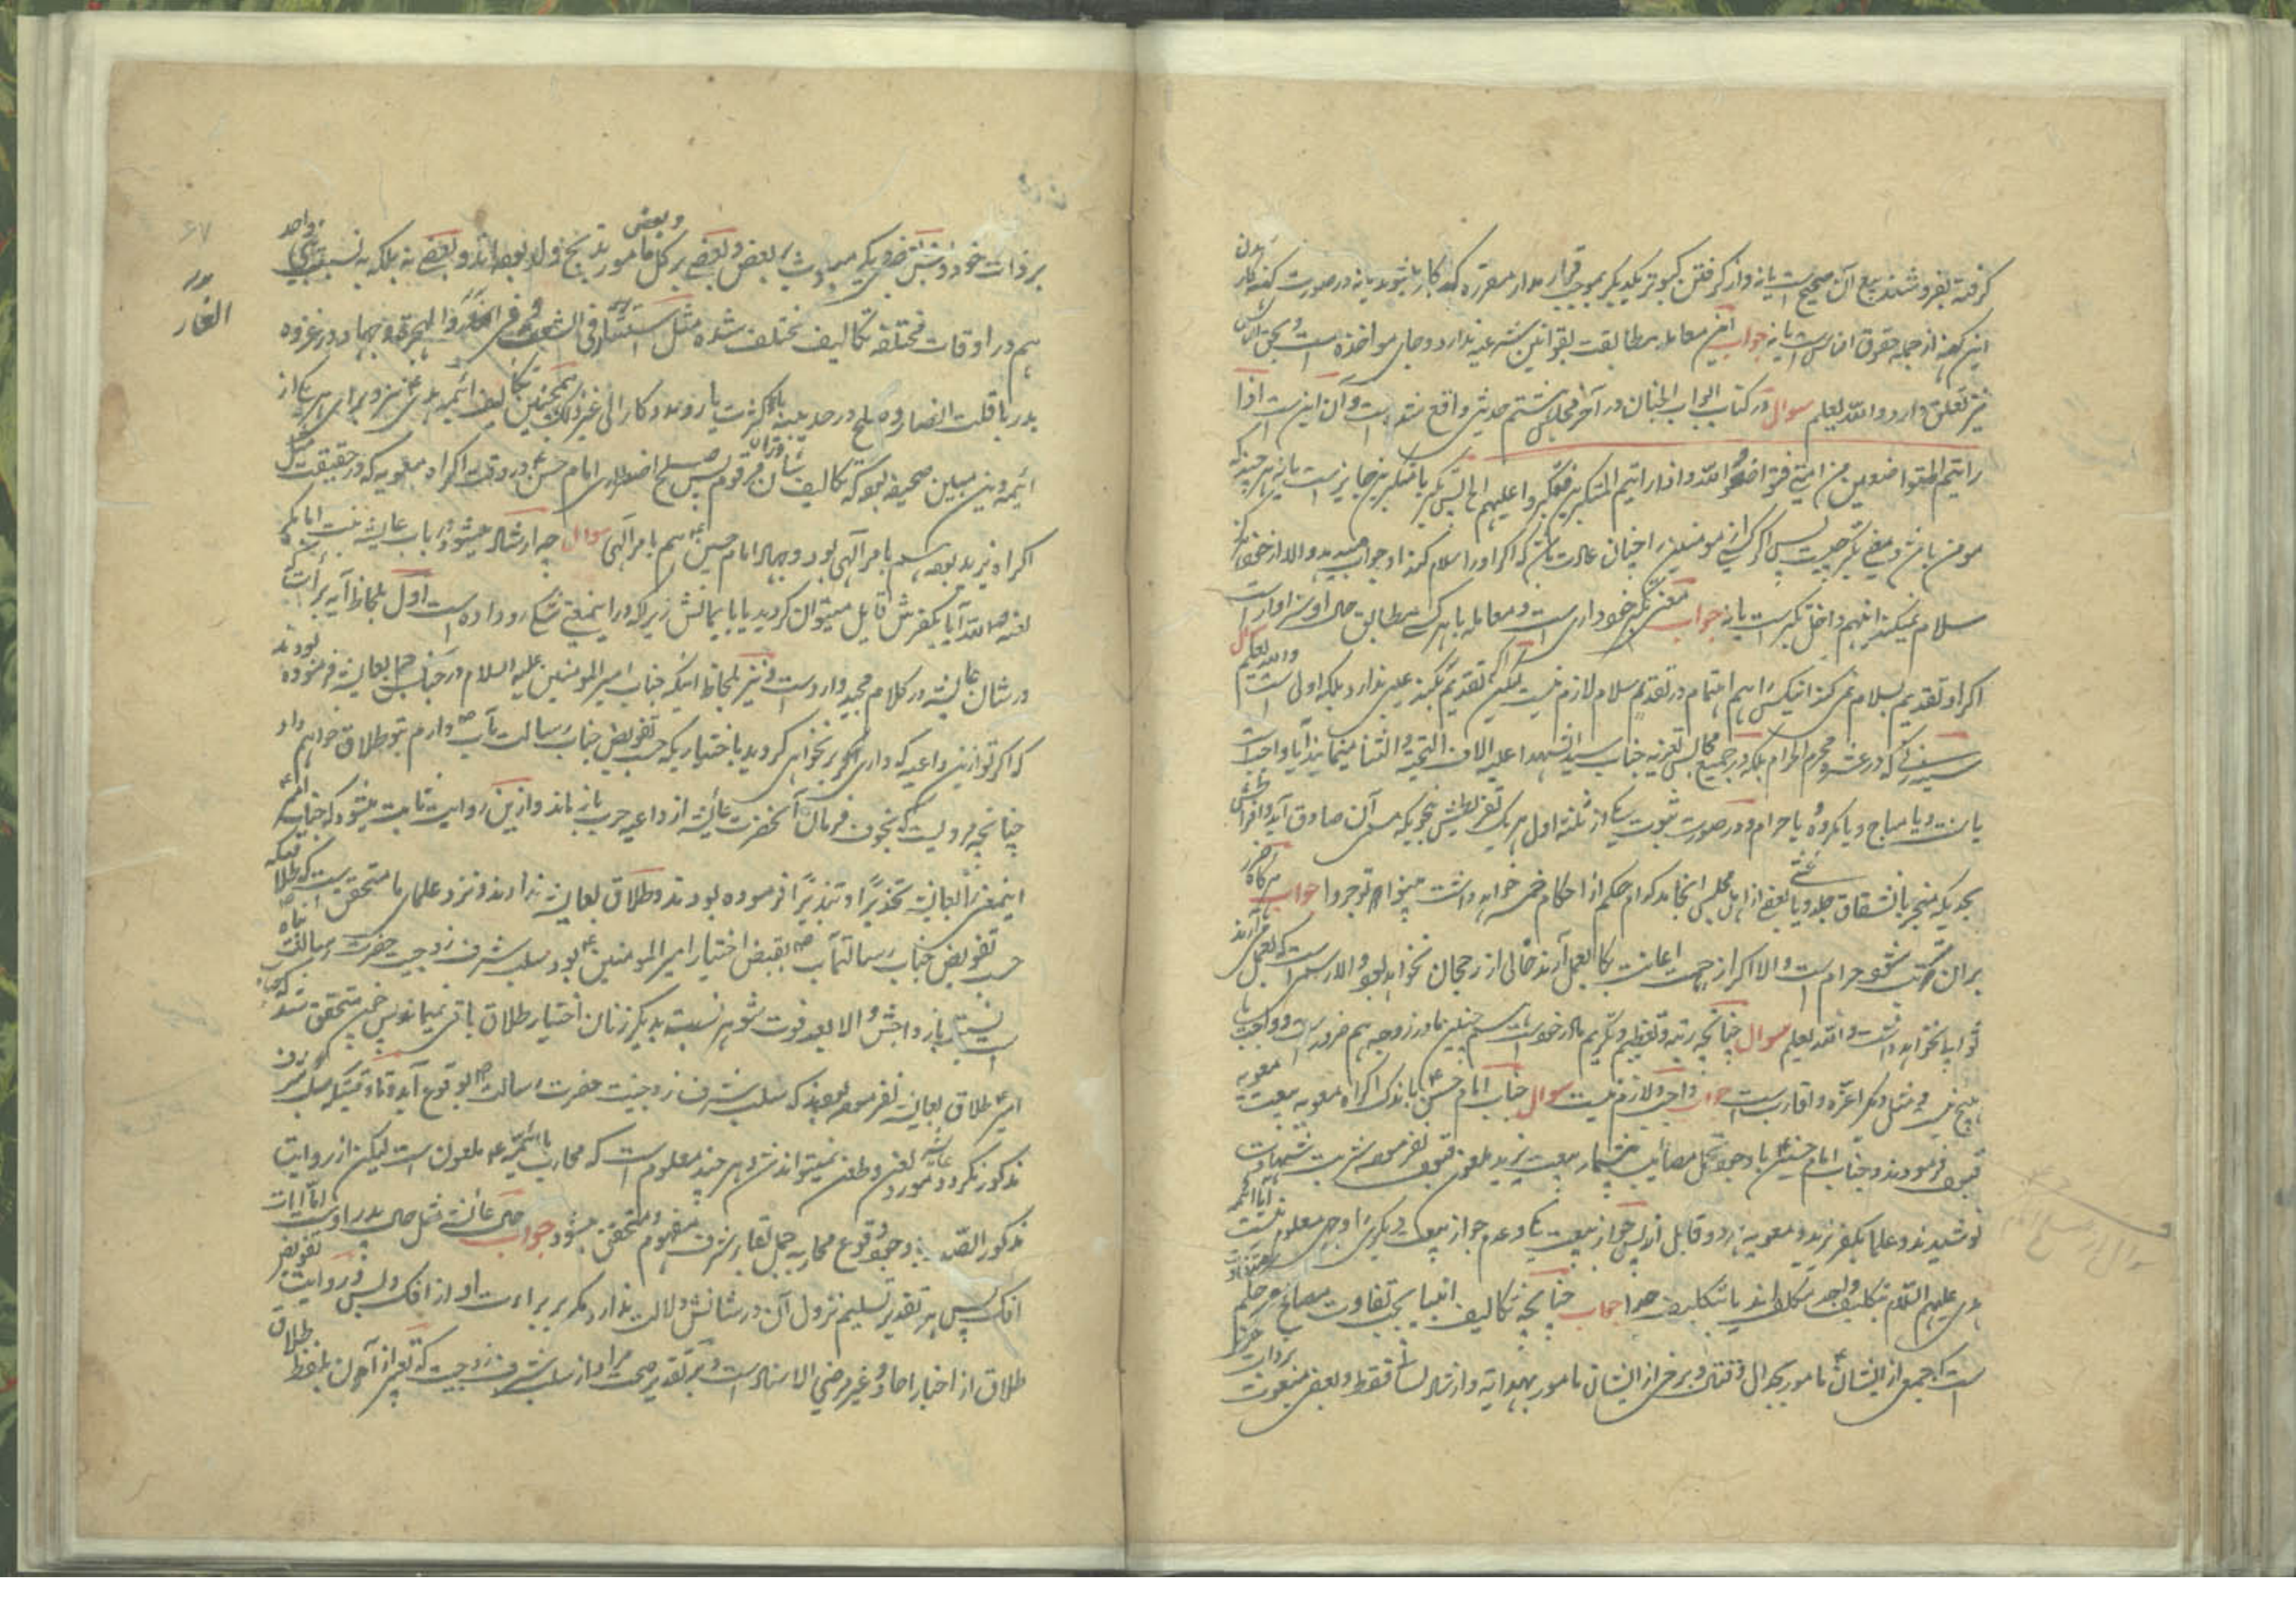 گرفته بفروشند بیع آن صحیح است یا نه و از گرفتن کبوتر یکدیگر بموجب قرار مدار مقرره گنهکار میشوند یا نه در صورت گنهکار شدن
این گنه از جمله حقوق الناس است یا نه جواب این معامله مطابقت بقوانین شرعیه ندارد و جای مواخذه است و بحق الناس
نیز تعلق دارد والله یعلم سوال در کتاب ابواب الجنان در آخر مجلس هشتم حدیثی واقع شده است و آن این ست اذا
رایتم المتواضعین من امتی فتواضعوا لهم و اذا رایتم المتکبرین فتکبروا علیهم الخ پس تکبر با متکبرین جایز است یا نه هر چند که
مومن باشند و معنی تکبر چیست پس اگر کسی از مومنین را چنان عادت باشد که اگر او را سلام کنند او جواب میدهد والا از خود
سلام نمیکند اینهم داخل تکبر است یا نه جواب معنی تکبر خودداری است و معامله با هر کسی مطابق حال او سزاوار است
اگر او تقدیم بسلام نمی کند اینکس را هم اهتمام در تقدیم سلام لازم نیست لیکن اگر تقدیم بکند عیبی ندارد بلکه اولی است والله یعلم سوال
سینه زنی که در عشره محرم الحرام بلکه در جمیع مجالس تعزیه جناب سید الشهدا علیه الاف التحیه والثنا مینمایند آیا واجب است
یا سنت و یا مباح و یا مکروه یا حرام و در صورت ثبوت یکی از ثلثه اول هر یک تفریطش بنحویکه مس آن صادق آید و افراطش
بحدیکه منجر بانشقاق جلد و یا غشی بعضی از اهل مجلس انجامد کدام حکم از احکام خمسه خواهد داشت بینوا توجروا جواب هرگاه ضرر
بران مترتب شود حرام ست والا اگر از جهت اعانت بکا بعمل آرند خالی از رجحان نخواهد بود والا رسمی است که بعمل می آرند
ثوابی نخواهد داشت والله یعلم سوال چنانچه رتبه و تعظیم و تکریم مادر خود است همچنین مادر زوجه هم ضرور است و واجب یا
هیچ نیست و مثل دیگر اعزه و اقارب است جواب واجب و لازم نیست سوال جناب امام حسن ع باندک اکراه معویه بیعت معویه
قبول فرمودند و جناب امام حسین ع با وجود تحمل مصائب بیشمار بیعت یزید ملعون قبول نفرموده شربت شهادت
نوشیدند و علما بکفر یزید و معویه هر دو قایل اند پس جواز بیعت یکی و عدم جواز بیعت دیگری را وجهی معلوم نیست آیا ائمه
هدی علیهم السلام بتکلیف واحد مکلف اند یا بتکلیف جدا جواب چنانچه تکالیف انبیا بجهت تفاوت مصالح
است که جمعی از ایشان ع مامور بجدال و قتال و برخی از ایشان مامور بهدایه و ارشاد لسانا فقط و بعضی مبعوث
بر ذات خود و بس
هم در اوقات مختلفه تکالیف مختلف شده مثل استتار فی الشعب و فی الغار و الهجرة و جهاد در غزوه
بدر با قلت انصار و صلح در حدیبیه با کثرت یار و مددکار الی غیر ذلک همچنین تکالیف ائمه هدی ع نیز و برای هر یک از
ائمه دین مبین صحیفه بود که تکالیف شان دران مرقوم پس صلح اضطراری امام حسن ع در وقت اکراه معویه که در حقیقت مثل
اکراه یزید بود هم بامر الهی بود و جهاد امام حسین ع هم بامر الهی سوال چه ارشاد میشود در باب عایشه بنت ابابکر
لعنه الله آیا بکفرش قایل میتوان گردید یا بایمانش زیرا که درین معنی شک رو داده است اول بلحاظ آیه برأت که
در شان عایشه در کلام مجید وارد است و نیز بلحاظ اینکه جناب امیر المومنین علیه السلام در جنگ جمل بعایشه فرموده بودند
که اگر تو ازین داعیه که داری بر نخواهی گردید باختیاریکه حسب تفویض جناب رسالت مآب ص دارم بتو طلاق خواهم داد
چنانچه مرویست که بخوف فرمان آنحضرت عائشه از داعیه حرب باز ماند و ازین روایت ثابت میشود که جناب امیر ع
اینمعنی را بعایشه تحذیرا و تنذیرا فرموده بودند و طلاق بعایشه ندادند و نزد علمای ما متحقق است که طلاقیکه
حسب تفویض جناب رسالتمآب ص بقبض اختیار امیر المومنین ع بود سلب شرف زوجیت حضرت رسالت پناه ص
است نسبت بازواجش والا بعد فوت شوهر نسبت بدیگر زنان اختیار طلاق باقی نمیماند پس متحقق شد که جناب
امیر ع طلاق بعایشه نفرموده بودند که سلب شرف زوجیت حضرت رسالت ص بوقوع آید و تا وقتیکه سلب شرف
مذکور نگردد عایشه مورد لعن و طعن نمیتواند شد هر چند معلوم است که محارب با ائمه ع ملعون است لیکن از روایت
مذکور الصدر با وجود وقوع محاربه جمل بقای شرف مفهوم و متحقق میشود جواب حال عائشه مثل حال پدر اوست اما آیات
افک پس بر تقدیر تسلیم نزول آن در شانش دلالت ندارد مگر بر براءت او از افک و بس و روایت تفویض
طلاق از اخبار احاد و غیر مرضی الاسناد است و بر تقدیر صحت مراد از سلب شرف زوجیت که تعبیر از آن بلفظ طلاق
الغار
۶۷